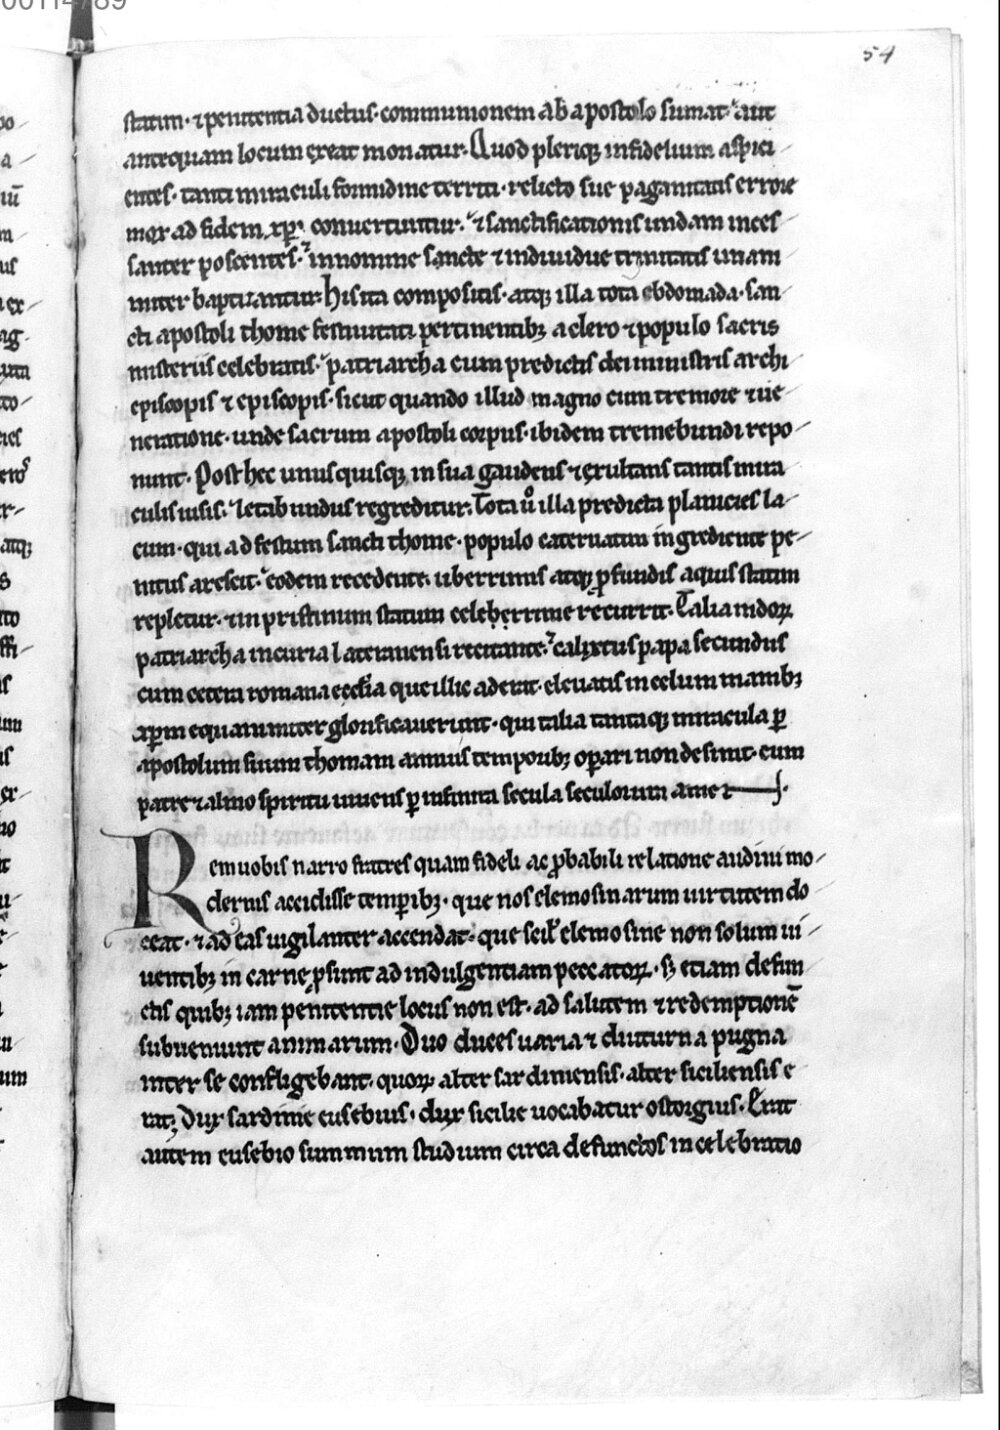 54
statim· ⁊ penitentia ductus· communionem ab apostolo sumat· aut
antequam locum exeat moriatur. Quod pleriq; infidelium aspici-
entes· tanti miraculi formidine territi· relicto sue paganitatis errore
mox ad fidem xpi convertuntur· ⁊ sanctificationis undam inces-
santer poscentes· in nomine sancte ⁊ individue trinitatis unani-
miter baptizantur. His ita compositis· atq; illa tota ebdomada· san-
cti apostoli thome festivitati pertinentib; a clero ⁊ populo sacris
misteriis celebratis· patriarcha cum predictis dei ministris archi-
episcopis ⁊ episcopis· sicut quando illud magno cum tremore ⁊ ue-
neratione· unde sacrum apostoli corpus· ibidem tremebundi repo-
nunt. Post hec unusquisq; in sua gaudens ⁊ exultans tantis mira-
culis uisis· letabundus regreditur. Tota u͛o illa predicta planicies la-
cum· qui ad festum sancti thome· populo cateruatim ingrediente pe-
nitus arescit· eodem recedente· uberrimis atq; ꝓfundis aquis statim
repletur· ⁊ in pristinum statum celeberrime recurrit. Talia indoꝝ
patriarcha in curia lateranensi recitante· calixtus papa secundus
cum cetera romana ecclia que illic aderat· eleuatis in celum manib;
xpm equanimiter glorificauerunt· qui talia tantaq; miracula ꝑ
apostolum suum thomam annuis temporib; oꝑari non desinit· cum
patre ⁊ almo spiritu uiuens ꝑ infinita secula seculorum ame⁊
Rem uobis narro fratres quam fideli ac ꝓbabili relatione audiui mo-
dernis accidisse temꝑib;· que nos elemosinarum uirtutem do
ceat· ⁊ ad eas uigilanter accendat· que scil' elemosine non solum ui-
uentib; in carne ꝓsunt ad indulgentiam peccatoꝝ· s; etiam defun
ctis quib; iam penitentie locus non est· ad salutem ⁊ redemptionē
subueniunt animarum. Duo duces uaria ⁊ diuturna pugna
inter se confligebant· quoꝝ alter sardiniensis· alter siciliensis e-
rat; Dux sardinie eusebius· dux sicilie uocabatur ostorgius. Erat
autem eusebio summum studium circa defunctos in celebratio